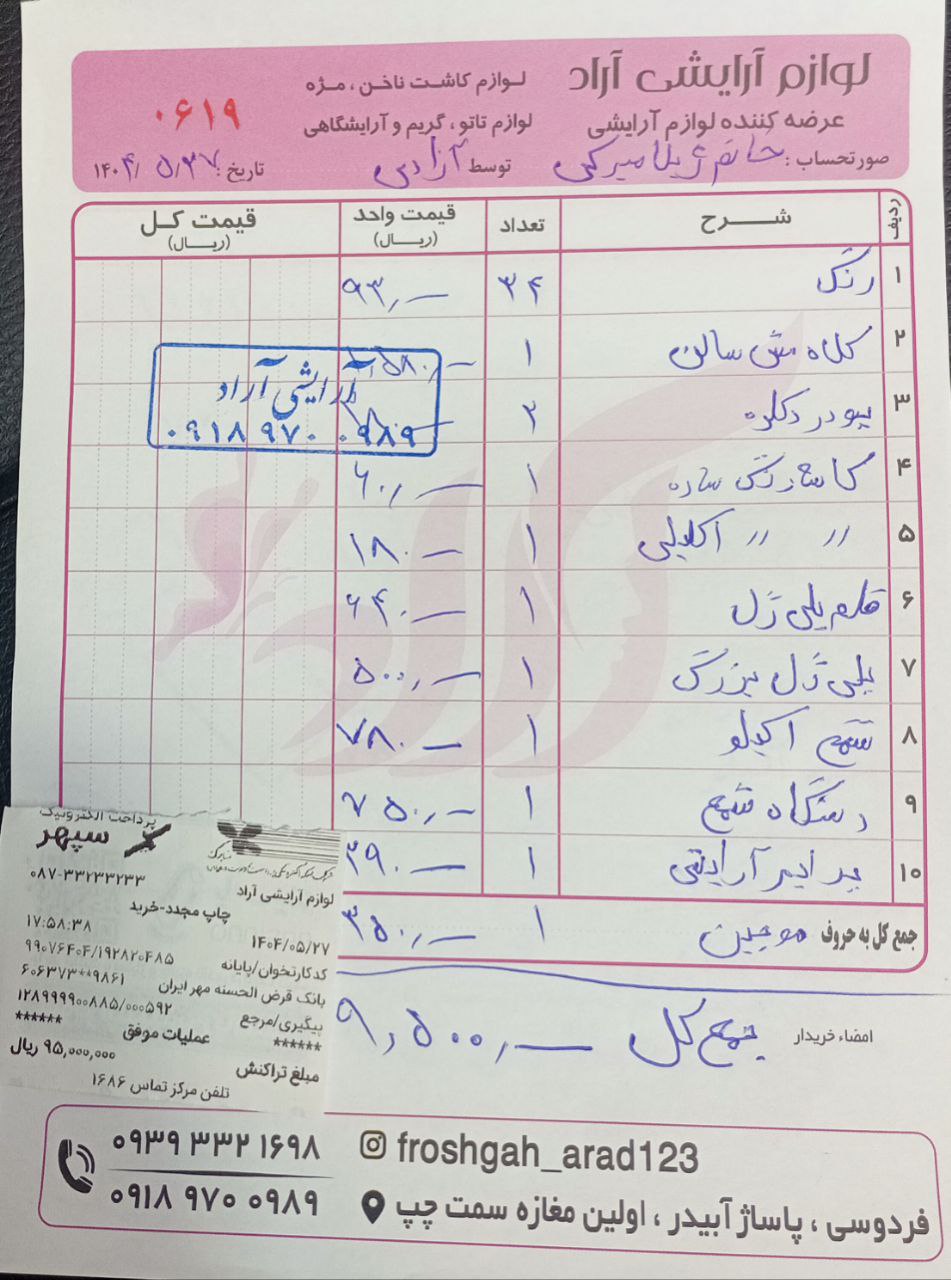 لوازم آرایشی آراد
لوازم کاشت ناخن ، مژه
عرضه کننده لوازم آرایشی
لوازم تاتو ، گریم و آرایشگاهی
۰۶۱۹
صورتحساب : خانم ژیلا میرکی توسط آزادی تاریخ : ۱۴۰۴/۵/۲۷
ردیف شرح تعداد قیمت واحد (ریال) قیمت کل (ریال)
۱ رنگ ۳۴ ۹۳,—
۲ کلاه مش سالن ۱ ۵۸۰,—
۳ پودر دکلره ۲
۴ کاسه رنگ ساده ۱ ۶۰,—
۵ 〃 〃 اکلیلی ۱ ۱۸۰—
۶ قلم پلی ژل ۱ ۶۴۰—
۷ پلی ژل بزرگ ۱ ۵۰۰,—
۸ شمع ۱ کیلو ۱ ۷۸۰—
۹ دستگاه شمع ۱ ۷۵۰,—
۱۰ آرایشی ۱ ۲۹۰—
جمع کل به حروف موچین ۱ ۳۵۰,—
آرایشی آراد
۰۹۱۸ ۹۷۰ ۰۹۸۹
امضاء خریدار جمع کل ۹,۵۰۰,—
پرداخت الکترونیک
سپهر
۰۸۷-۳۳۲۳۳۲۳۳
لوازم آرایشی آراد
چاپ مجدد-خرید
۱۴۰۴/۰۵/۲۷ ۱۷:۵۸:۳۸
کدکارتخوان/پایانه ۹۹۰۷۶۴۰۴/۱۹۲۸۲۰۴۸۵
بانک قرض الحسنه مهر ایران ۶۰۶۳۷۳**۹۸۶۱
پیگیری/مرجع ۱۲۸۹۹۹۹۰۰۸۸۵/۰۰۰۵۹۲
****** عملیات موفق ******
مبلغ تراکنش ۹۵,۰۰۰,۰۰۰ ریال
تلفن مرکز تماس ۱۶۸۶
۰۹۳۹ ۳۳۲ ۱۶۹۸
froshgah_arad123
۰۹۱۸ ۹۷۰ ۰۹۸۹
فردوسی ، پاساژ آبیدر ، اولین مغازه سمت چپ